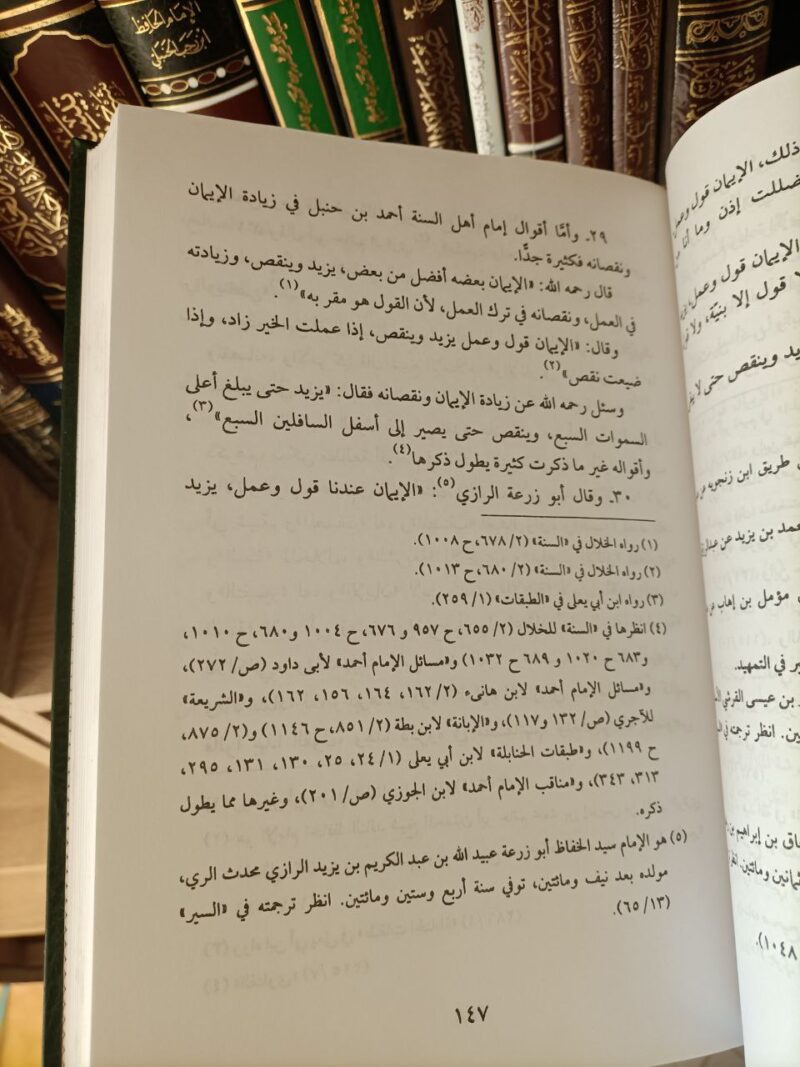 الإمام الحافظ
ابن رجب الحنبلي
٢٩ـ وأمَّا أقوال إمام أهل السنة أحمد بن حنبل في زيادة الإيمان
ونقصانه فكثيرة جدًّا.
قال رحمه الله: «الإيمان بعضه أفضل من بعض، يزيد وينقص، وزيادته
في العمل، ونقصانه في ترك العمل، لأن القول هو مقر به»(١).
وقال: «الإيمان قول وعمل يزيد وينقص، إذا عملت الخير زاد، وإذا
ضيعت نقص»(٢).
وسئل رحمه الله عن زيادة الإيمان ونقصانه فقال: «يزيد حتى يبلغ أعلى
السموات السبع، وينقص حتى يصير إلى أسفل السافلين السبع»(٣)،
وأقواله غير ما ذكرت كثيرة يطول ذكرها(٤).
٣٠ـ وقال أبو زرعة الرازي(٥): «الإيمان عندنا قول وعمل، يزيد
(١) رواه الخلال في «السنة» (٢/ ٦٧٨، ح ١٠٠٨).
(٢) رواه الخلال في «السنة» (٢/ ٦٨٠، ح ١٠١٣).
(٣) رواه ابن أبي يعلى في «الطبقات» (١/ ٢٥٩).
(٤) انظرها في «السنة» للخلال (٢/ ٦٥٥، ح ٩٥٧ و ٦٧٦، ح ١٠٠٤ و٦٨٠، ح ١٠١٠،
و٦٨٣ ح ١٠٢٠ و ٦٨٩ ح ١٠٣٢) و«مسائل الإمام أحمد» لأبى داود (ص/ ٢٧٢)،
و«مسائل الإمام أحمد» لابن هانىء (٢/ ١٦٢، ١٦٤، ١٥٦، ١٦٢)، و«الشريعة»
للآجري (ص/ ١٣٢ و١١٧)، و«الإبانة» لابن بطة (٢/ ٨٥١، ح ١١٤٦) و(٢/ ٨٧٥،
ح ١١٩٩)، و«طبقات الحنابلة» لابن أبي يعلى (١/ ٢٤، ٢٥، ١٣٠، ١٣١، ٢٩٥،
٣١٣، ٣٤٣)، و«مناقب الإمام أحمد» لابن الجوزي (ص/ ٢٠١)، وغيرها مما يطول
ذكره.
(٥) هو الإمام سيد الحفاظ أبو زرعة عبيد الله بن عبد الكريم بن يزيد الرازي محدث الري،
مولده بعد نيف ومائتين، توفي سنة أربع وستين ومائتين. انظر ترجمته في «السير»
(١٣/ ٦٥).
١٤٧
ذلك، الإيمان قول وعمل
ضللت إذن وما أنا من
الإيمان قول وعمل،
قول إلا بنيّة، ولا
وينقص حتى لا
طريق ابن زنجويه
بن يزيد عن
مؤمل بن إهاب
في التمهيد.
بن عيسى القرشي
انظر ترجمته في
بن إبراهيم بن
ومائتين.
١٠٤٨).